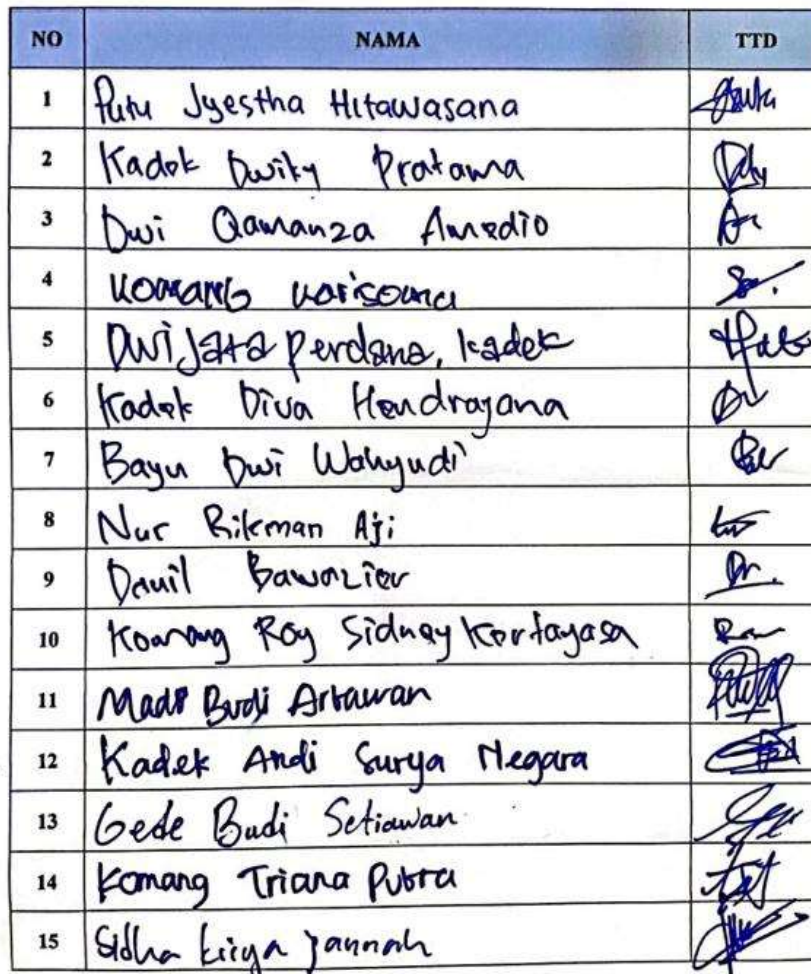 NO NAMA TTD
1 Putu Jyestha Hitawasana
2 Kadek Dwiky Pratama
3 Dwi Qamanza Amedio
4 Komang Karisouna
5 Dwi Jata Perdana, Kadek
6 Kadek Diva Hendrayana
7 Bayu Dwi Wahyudi
8 Nur Rikman Aji
9 Danil Bawazier
10 Komang Roy Sidney Kertayasa
11 Made Budi Artawan
12 Kadek Andi Surya Negara
13 Gede Budi Setiawan
14 Komang Triana Putra
15 Sidha Jannah